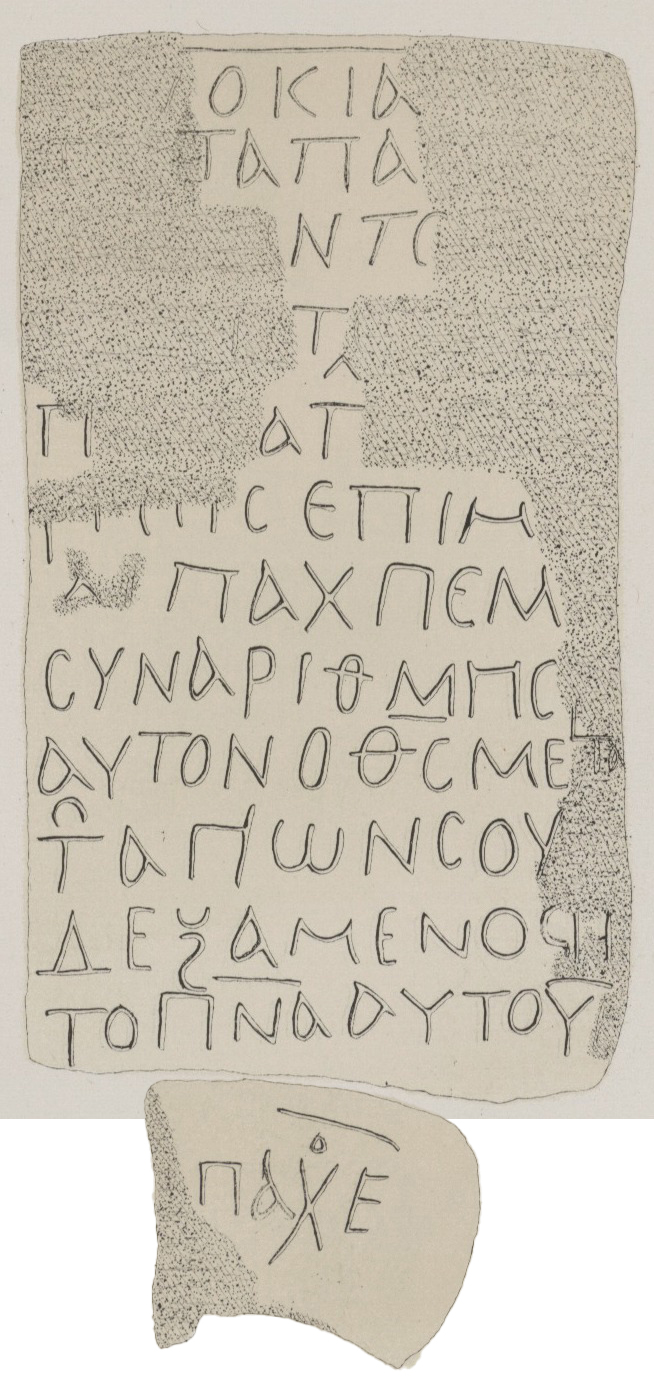 ΟΚΙΑ
ΤΑΠΑ
ΝΤΟ
Τ
Π ΑΤ
Ϲ ΕΠΙΜ
ΠΑΧ ΠΕΜ
ϹΥΝΑΡΙΘΜΗϹ
ΑΥΤΟΝ Ο ΘϹ ΜΕΤΑ
ΤΑΠΩΝ ϹΟΥ
ΔΕΞΑΜΕΝΟϹ
ΤΟ ΠΝΑ ΑΥΤΟΥ
ΠΑΧ Ε